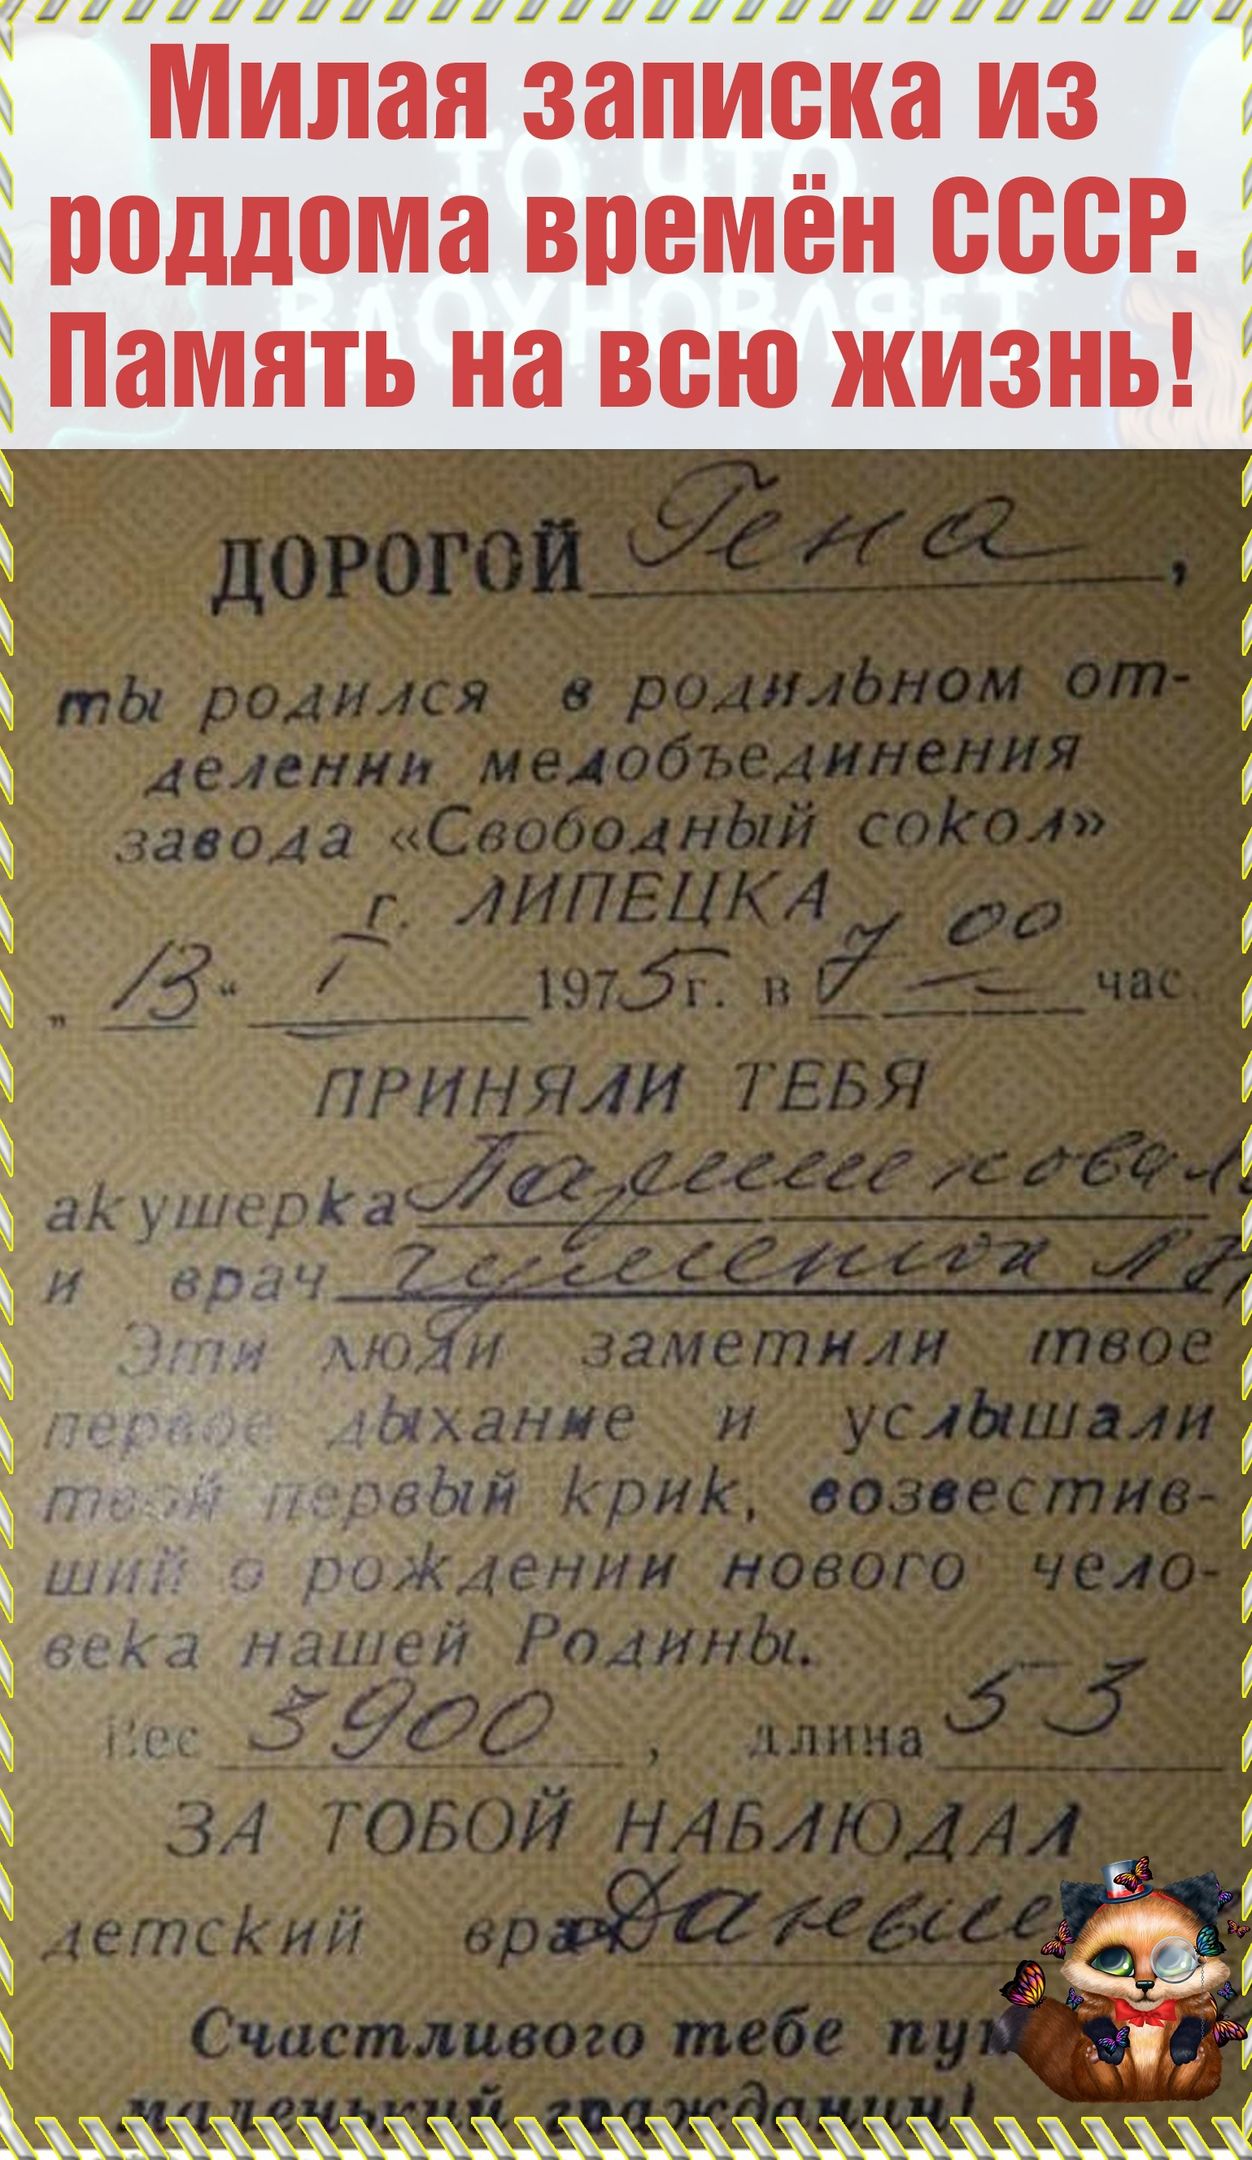 Милая записка из
роддома времён СССР.
Память на всю жизнь!
ДОРОГОЙ Гена,
ты родился в родильном от-
делении медобъединения
завода «Свободный сокол»
г. ЛИПЕЦКА
„13“ I 1975г. в 7 00 час.
ПРИНЯЛИ ТЕБЯ
акушерка
и врач
Эти люди заметили твое
первое дыхание и услышали
твой первый крик, возвестив-
ший о рождении нового чело-
века нашей Родины.
Вес 3900, длина 53
ЗА ТОБОЙ НАБЛЮДАЛ
детский врач
Счастливого тебе пу
маленький гражданин!